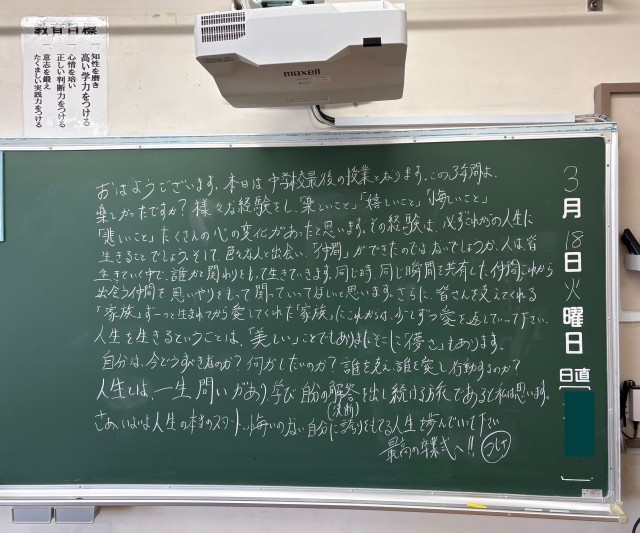 教育目標
知性を磨き
高い学力をつける
心情を培い
正しい判断力をつける
意志を鍛え
たくましい実践力をつける
maxell
おはようございます。本日は中学校最後の授業となります。この3年間は、
楽しかったですか？様々な経験をし、「楽しいこと」「嬉しいこと」「悔しいこと」
「悲しいこと」たくさんの心の変化があったと思います。その経験は、必ずこれからの人生に
生きることでしょう。そして、色々な人と出会い、「仲間」ができたのではないでしょうか。人は皆
生きていく中で、誰かと関わりをもって生きていきます。同じ時、同じ瞬間を共有した仲間、これから
出会う仲間を思いやりをもって関っていってほしいと思います。さらに、皆さんを支えてくれる
「家族」ずーっと生まれてから愛してくれた「家族」にこれからは、少しずつ愛を返していって下さい。
人生を生きるということは、「美しい」ことでもありまたそこに「儚さ」もあります。
自分は、今どうすべきなのか？何がしたいのか？誰を支え、誰を愛し行動するのか？
人生とは、一生問いがあり、学び自分の解答を出し続ける旅であると私は思います。
(決断)
さあ、いよいよ人生の本当のスタート、悔いのない自分に誇りをもてる人生を歩んでいって下さい
最高の卒業式へ!!
3月18日火曜日
日直